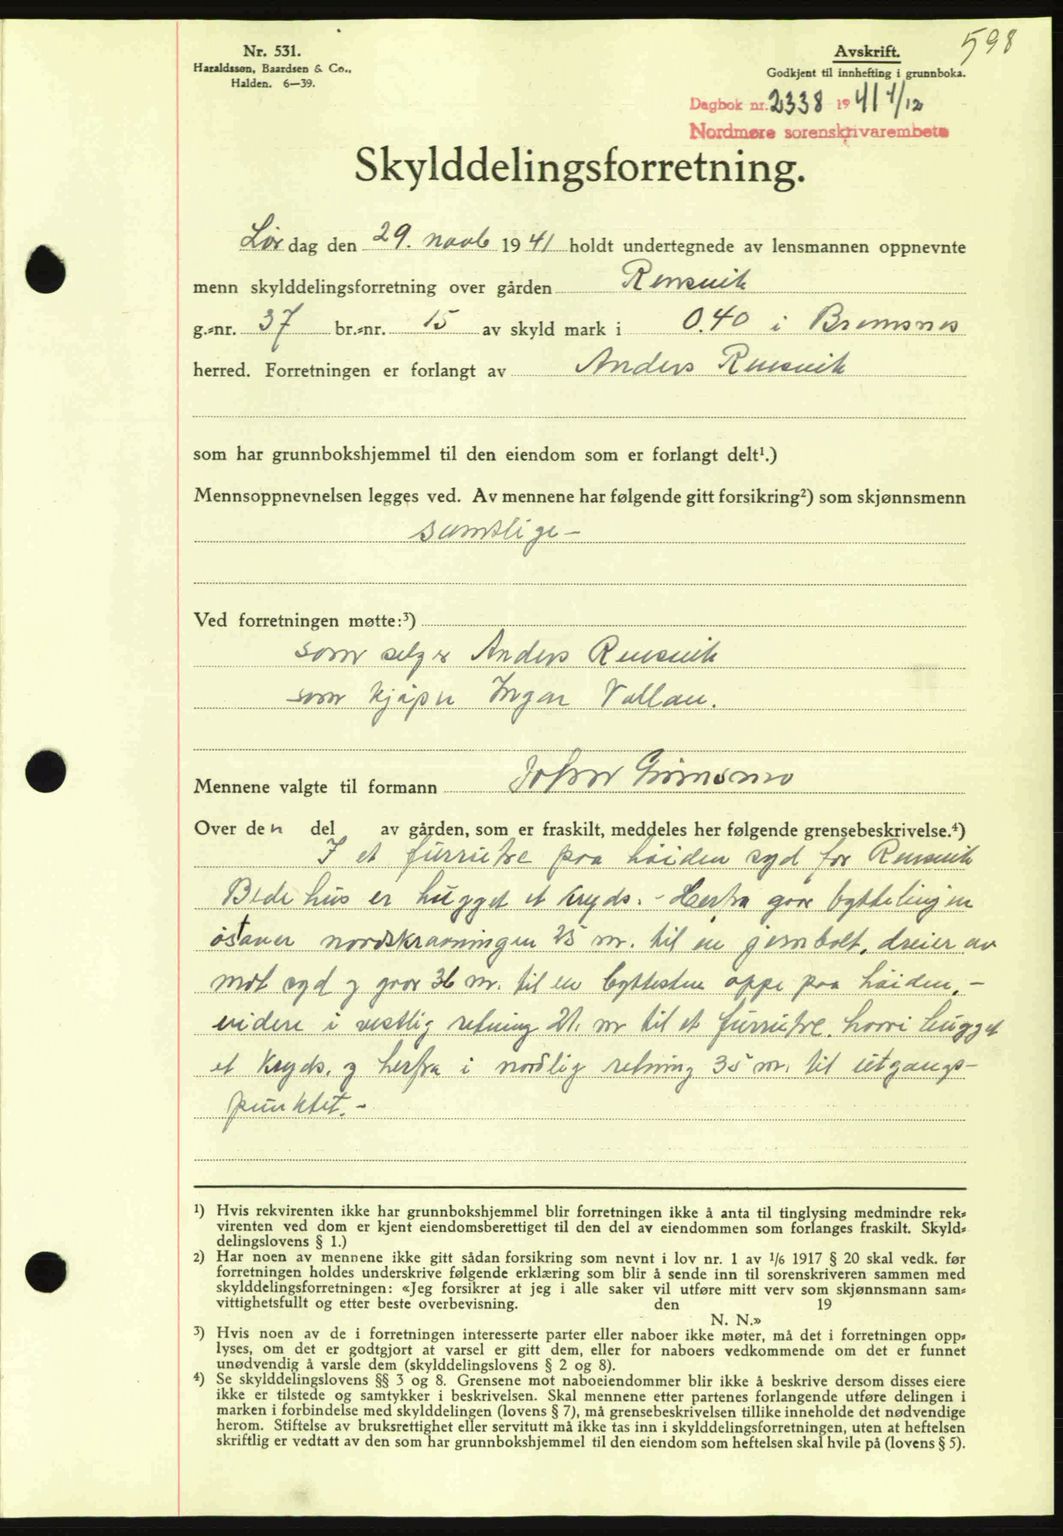 598
Nr. 531.
Haraldssøn, Baardsen & Co.,
Halden. 6—39.
Avskrift.
Godkjent til innhefting i grunnboka.
Dagbok nr. 2338 1941 4/12
Nordmøre sorenskrivarembete
Skylddelingsforretning.
Lør dag den 29. novb 1941 holdt undertegnede av lensmannen oppnevnte
menn skylddelingsforretning over gården Rensvik
g.-nr. 37 br.-nr. 15 av skyld mark i 0.40 i Bremsnes
herred. Forretningen er forlangt av Anders Rensvik
som har grunnbokshjemmel til den eiendom som er forlangt delt¹.)
Mennsoppnevnelsen legges ved. Av mennene har følgende gitt forsikring²) som skjønnsmenn
samtlige –
Ved forretningen møtte:³)
som selger Anders Rensvik
som kjøper Ingar Vollan.
Mennene valgte til formann Johan Grimsmo
Over den del av gården, som er fraskilt, meddeles her følgende grensebeskrivelse.⁴)
I et furrutre paa høiden syd for Rensvik
Bedehus er hugget et kryds. – Herfra gaar byttelinjen
østover nordskraaningen 25 m. til en jernbolt, dreier av
mot syd og gaar 36 m. til en byttesten oppe paa høiden, –
videre i vestlig retning 21. m til et furrutre, hvori hugget
et kryds, og herfra i nordlig retning 35 m. til utgangs–
punktet. –
¹) Hvis rekvirenten ikke har grunnbokshjemmel blir forretningen ikke å anta til tinglysing medmindre rek-
virenten ved dom er kjent eiendomsberettiget til den del av eiendommen som forlanges fraskilt. Skyld-
delingslovens § 1.)
²) Har noen av mennene ikke gitt sådan forsikring som nevnt i lov nr. 1 av 1/6 1917 § 20 skal vedk. før
forretningen holdes underskrive følgende erklæring som blir å sende inn til sorenskriveren sammen med
skylddelingsforretningen: «Jeg forsikrer at jeg i alle saker vil utføre mitt verv som skjønnsmann sam-
vittighetsfullt og etter beste overbevisning. den 19
N. N.»
³) Hvis noen av de i forretningen interesserte parter eller naboer ikke møter, må det i forretningen opp-
lyses, om det er godtgjort at varsel er gitt dem, eller for naboers vedkommende om det er funnet
unødvendig å varsle dem (skylddelingslovens § 2 og 8).
⁴) Se skylddelingslovens §§ 3 og 8. Grensene mot naboeiendommer blir ikke å beskrive dersom disses eiere
ikke er tilstede og samtykker i beskrivelsen. Skal mennene etter partenes forlangende utføre delingen i
marken i forbindelse med skylddelingen (lovens § 7), må grensebeskrivelsen tillike inneholde det nødvendige
herom. Stiftelse av bruksrettighet eller servitutt må ikke tas inn i skylddelingsforretningen, uten at heftelsen
skriftlig er vedtatt av den som har grunnbokshjemmel til den eiendom som heftelsen skal hvile på (lovens § 5).